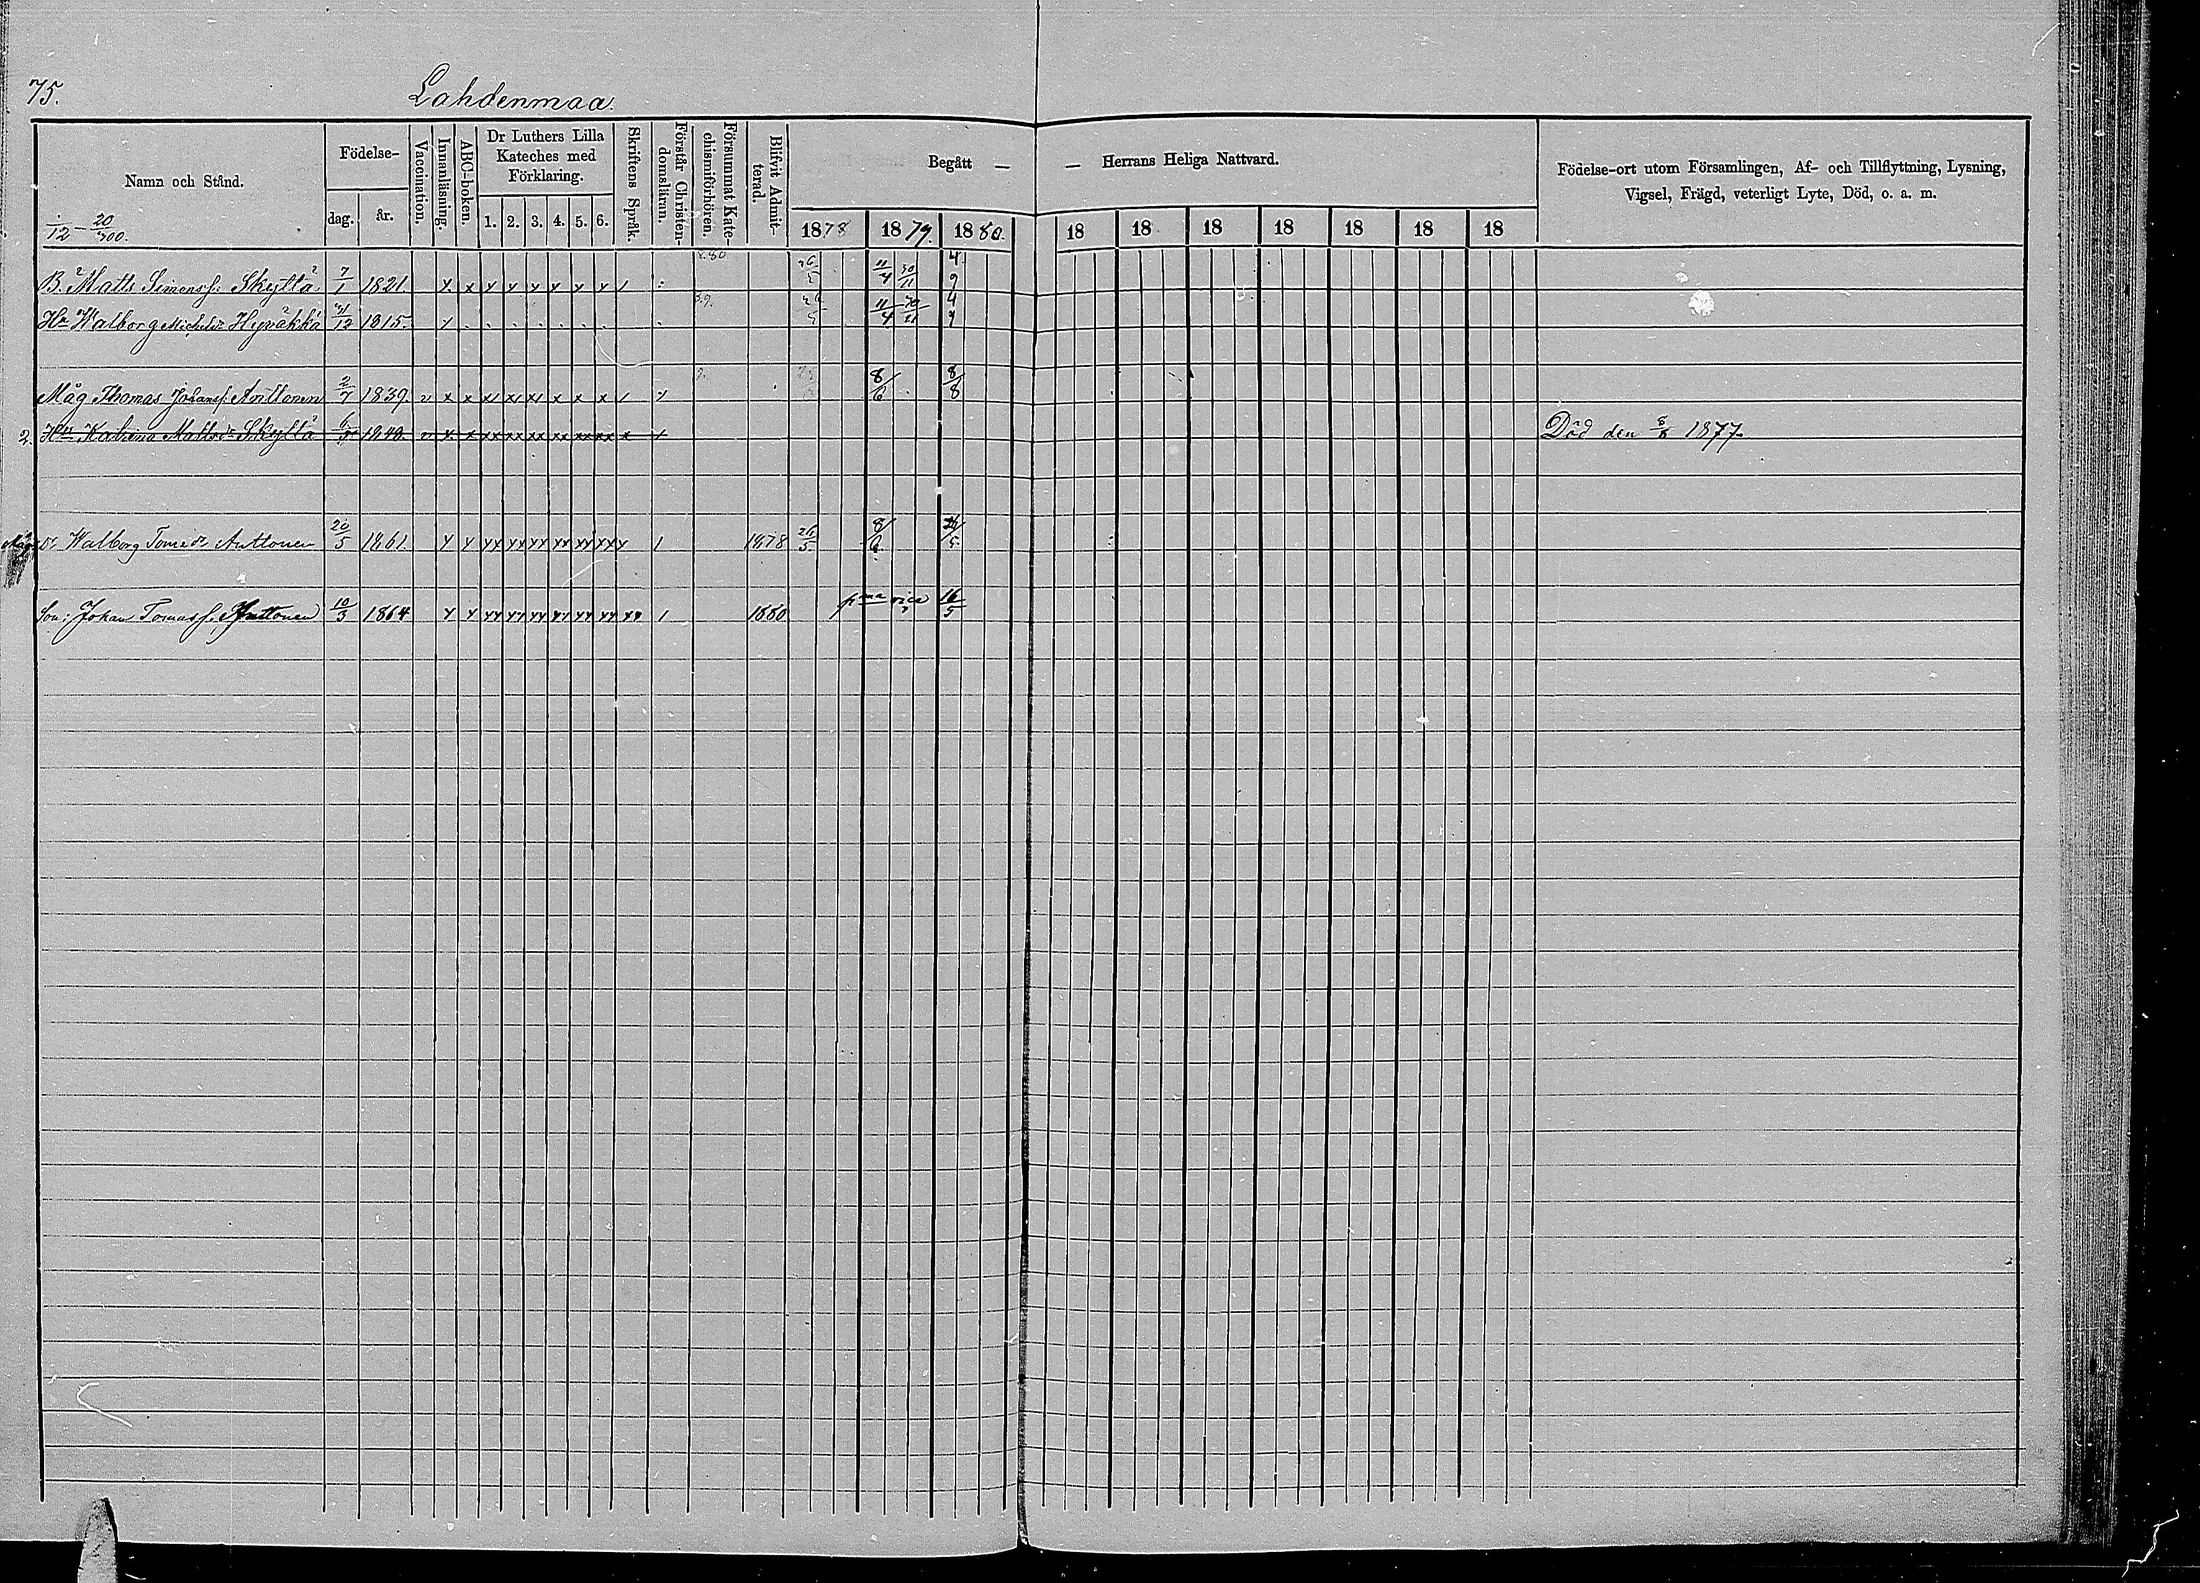 75. Lahdenmaa.
Namn och Stånd. Födelse- dag. år. Vaccination. Innanläsning. ABC-boken. Dr Luthers Lilla Kateches med Förklaring. 1. 2. 3. 4. 5. 6. Skriftens Språk. Förstår Christendomsläran. Försummat Katechismiförhören. Blifvit Admitterad. Begått — — Herrans Heliga Nattvard. 1878 1879. 1880. 18 18 18 18 18 18 18 Födelse-ort utom Församlingen, Af- och Tillflyttning, Lysning, Vigsel, Frägd, veterligt Lyte, Död, o. a. m.
1/12 - 20/300.
B. Matts Simonss. Skyttä 7/1 1821 x x x x x x x x / 11/4 30/11 4/9
Hu Walborg Michelsdr Hyväkkä 21/12 1815. 11/4 30/11 4/9
Måg Thomas Johanss. Anttonen 2/7 1839 v x x x x x x x x / 8/6 8/8
2. Hu Katrina Mattsdr Skyttä 1840. v x x xx xx xx xx xx xx x Död den 1877.
Dr Walborg Tomsdr Anttonen 20/5 1861. x x xx xx xx xx xx xx x / 1878 26/5 8/6
Son: Johan Tomass. Anttonen 10/3 1864 x x xx xx xx xx xx xx xx / 1880 pma vice 16/5